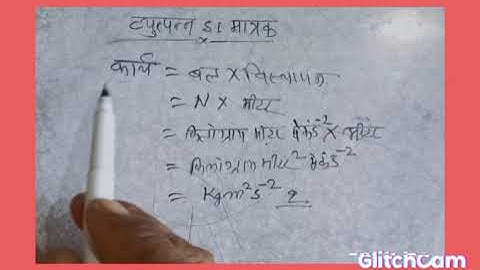 व्युत्पन्न S.I मात्रक
कार्य = बल × विस्थापन
= N × मीटर
= किलोग्राम मीटर सेकंड⁻² × मीटर
= किलोग्राम मीटर² सेकंड⁻²
= Kgm²s⁻²
GlitchCam